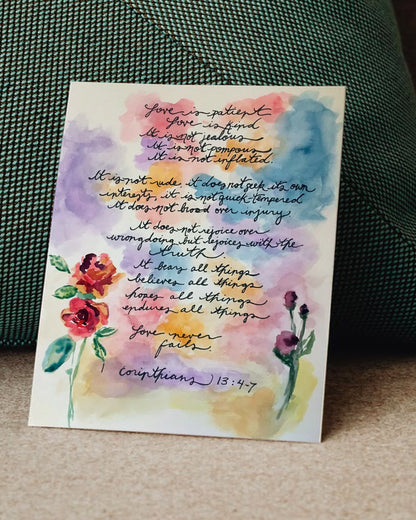 Love is patient
Love is kind
It is not jealous
It is not pompous
It is not inflated.
It is not rude, it does not seek its own
interests, it is not quick-tempered
It does not brood over injury
It does not rejoice over
wrongdoing but rejoices with the
truth.
It bears all things
believes all things
hopes all things
endures all things
Love never
fails.
Corinthians 13:4-7